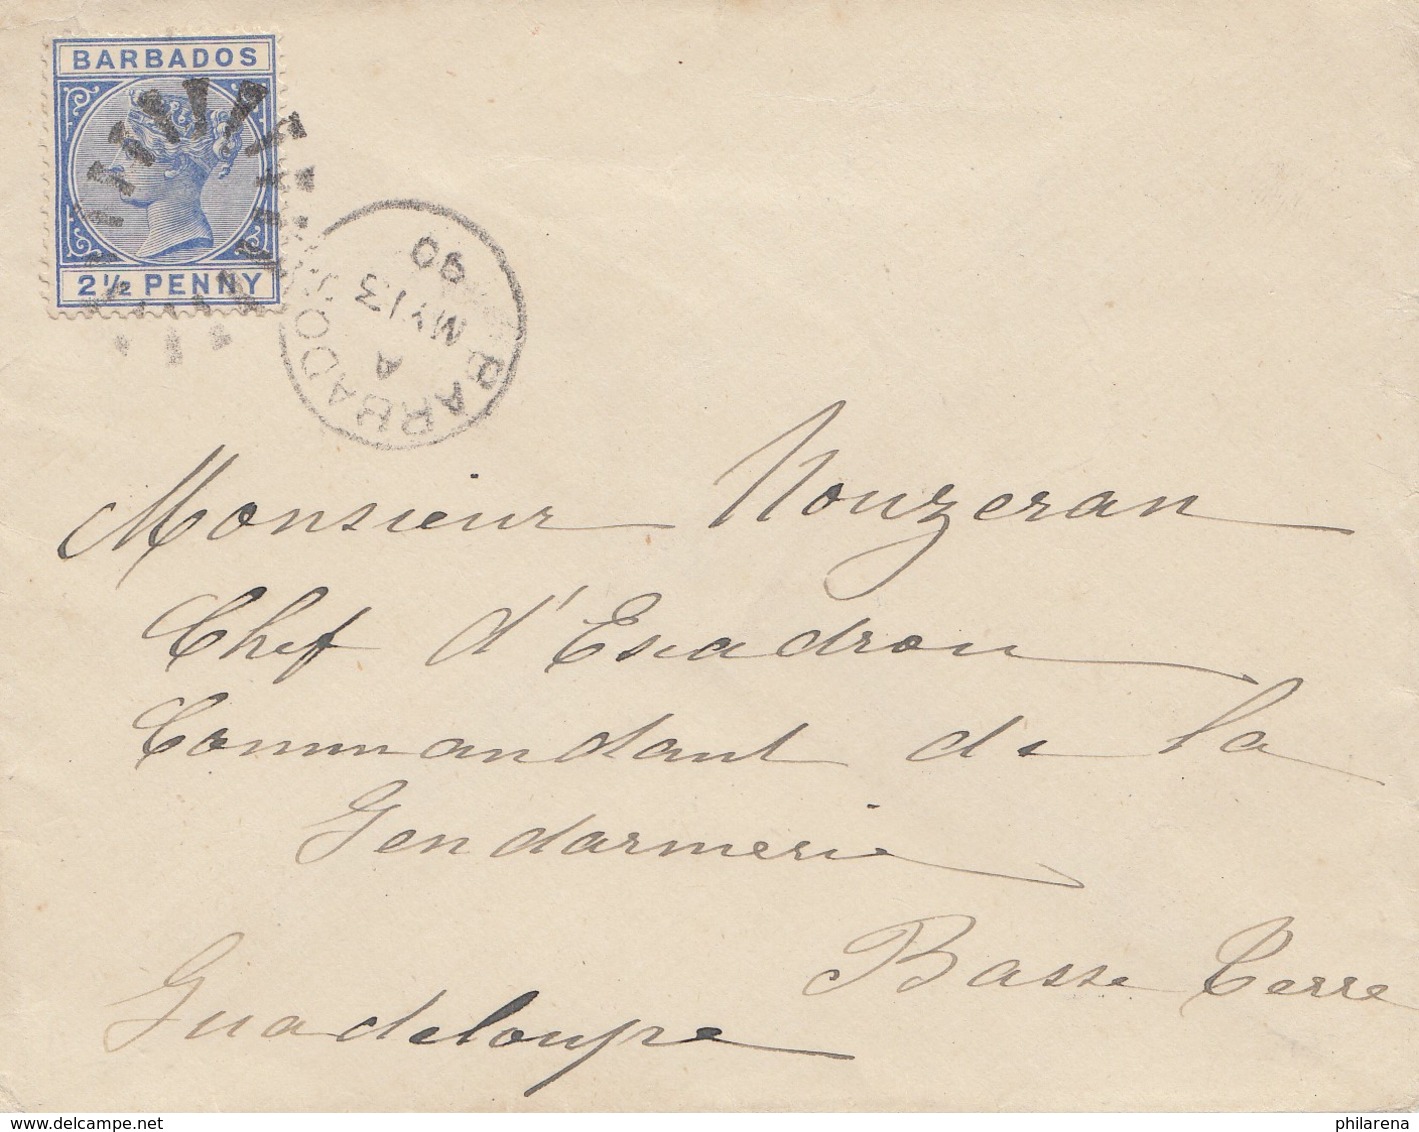 BARBADOS
2½ PENNY
BARBADOS
A
MY 13
90
Monsieur Nouzeran
Chef d'Escadron
Commandant de la
Gendarmerie
Basse Terre
Guadeloupe
www.delcampe.net
philarena